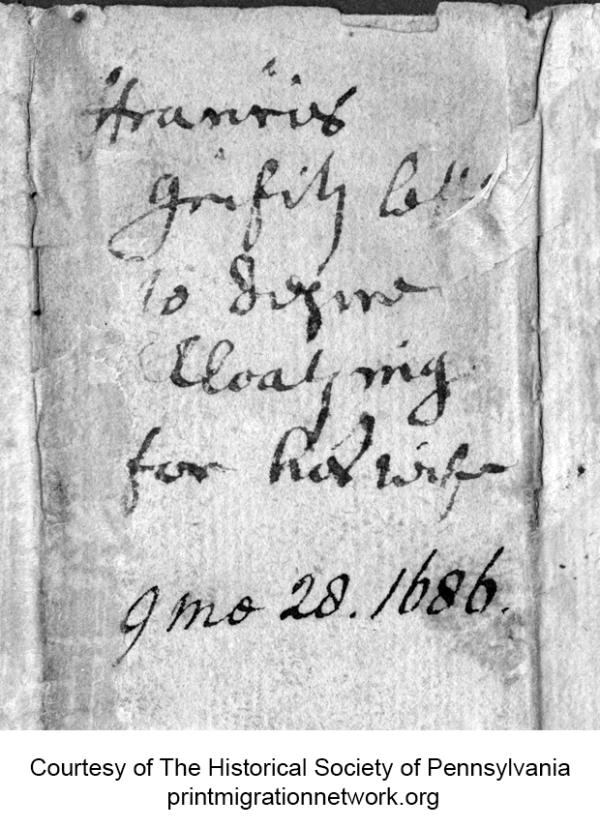 Francis
to
Cloathing
for his wife
9 mo 28. 1686.
Courtesy of The Historical Society of Pennsylvania
printmigrationnetwork.org